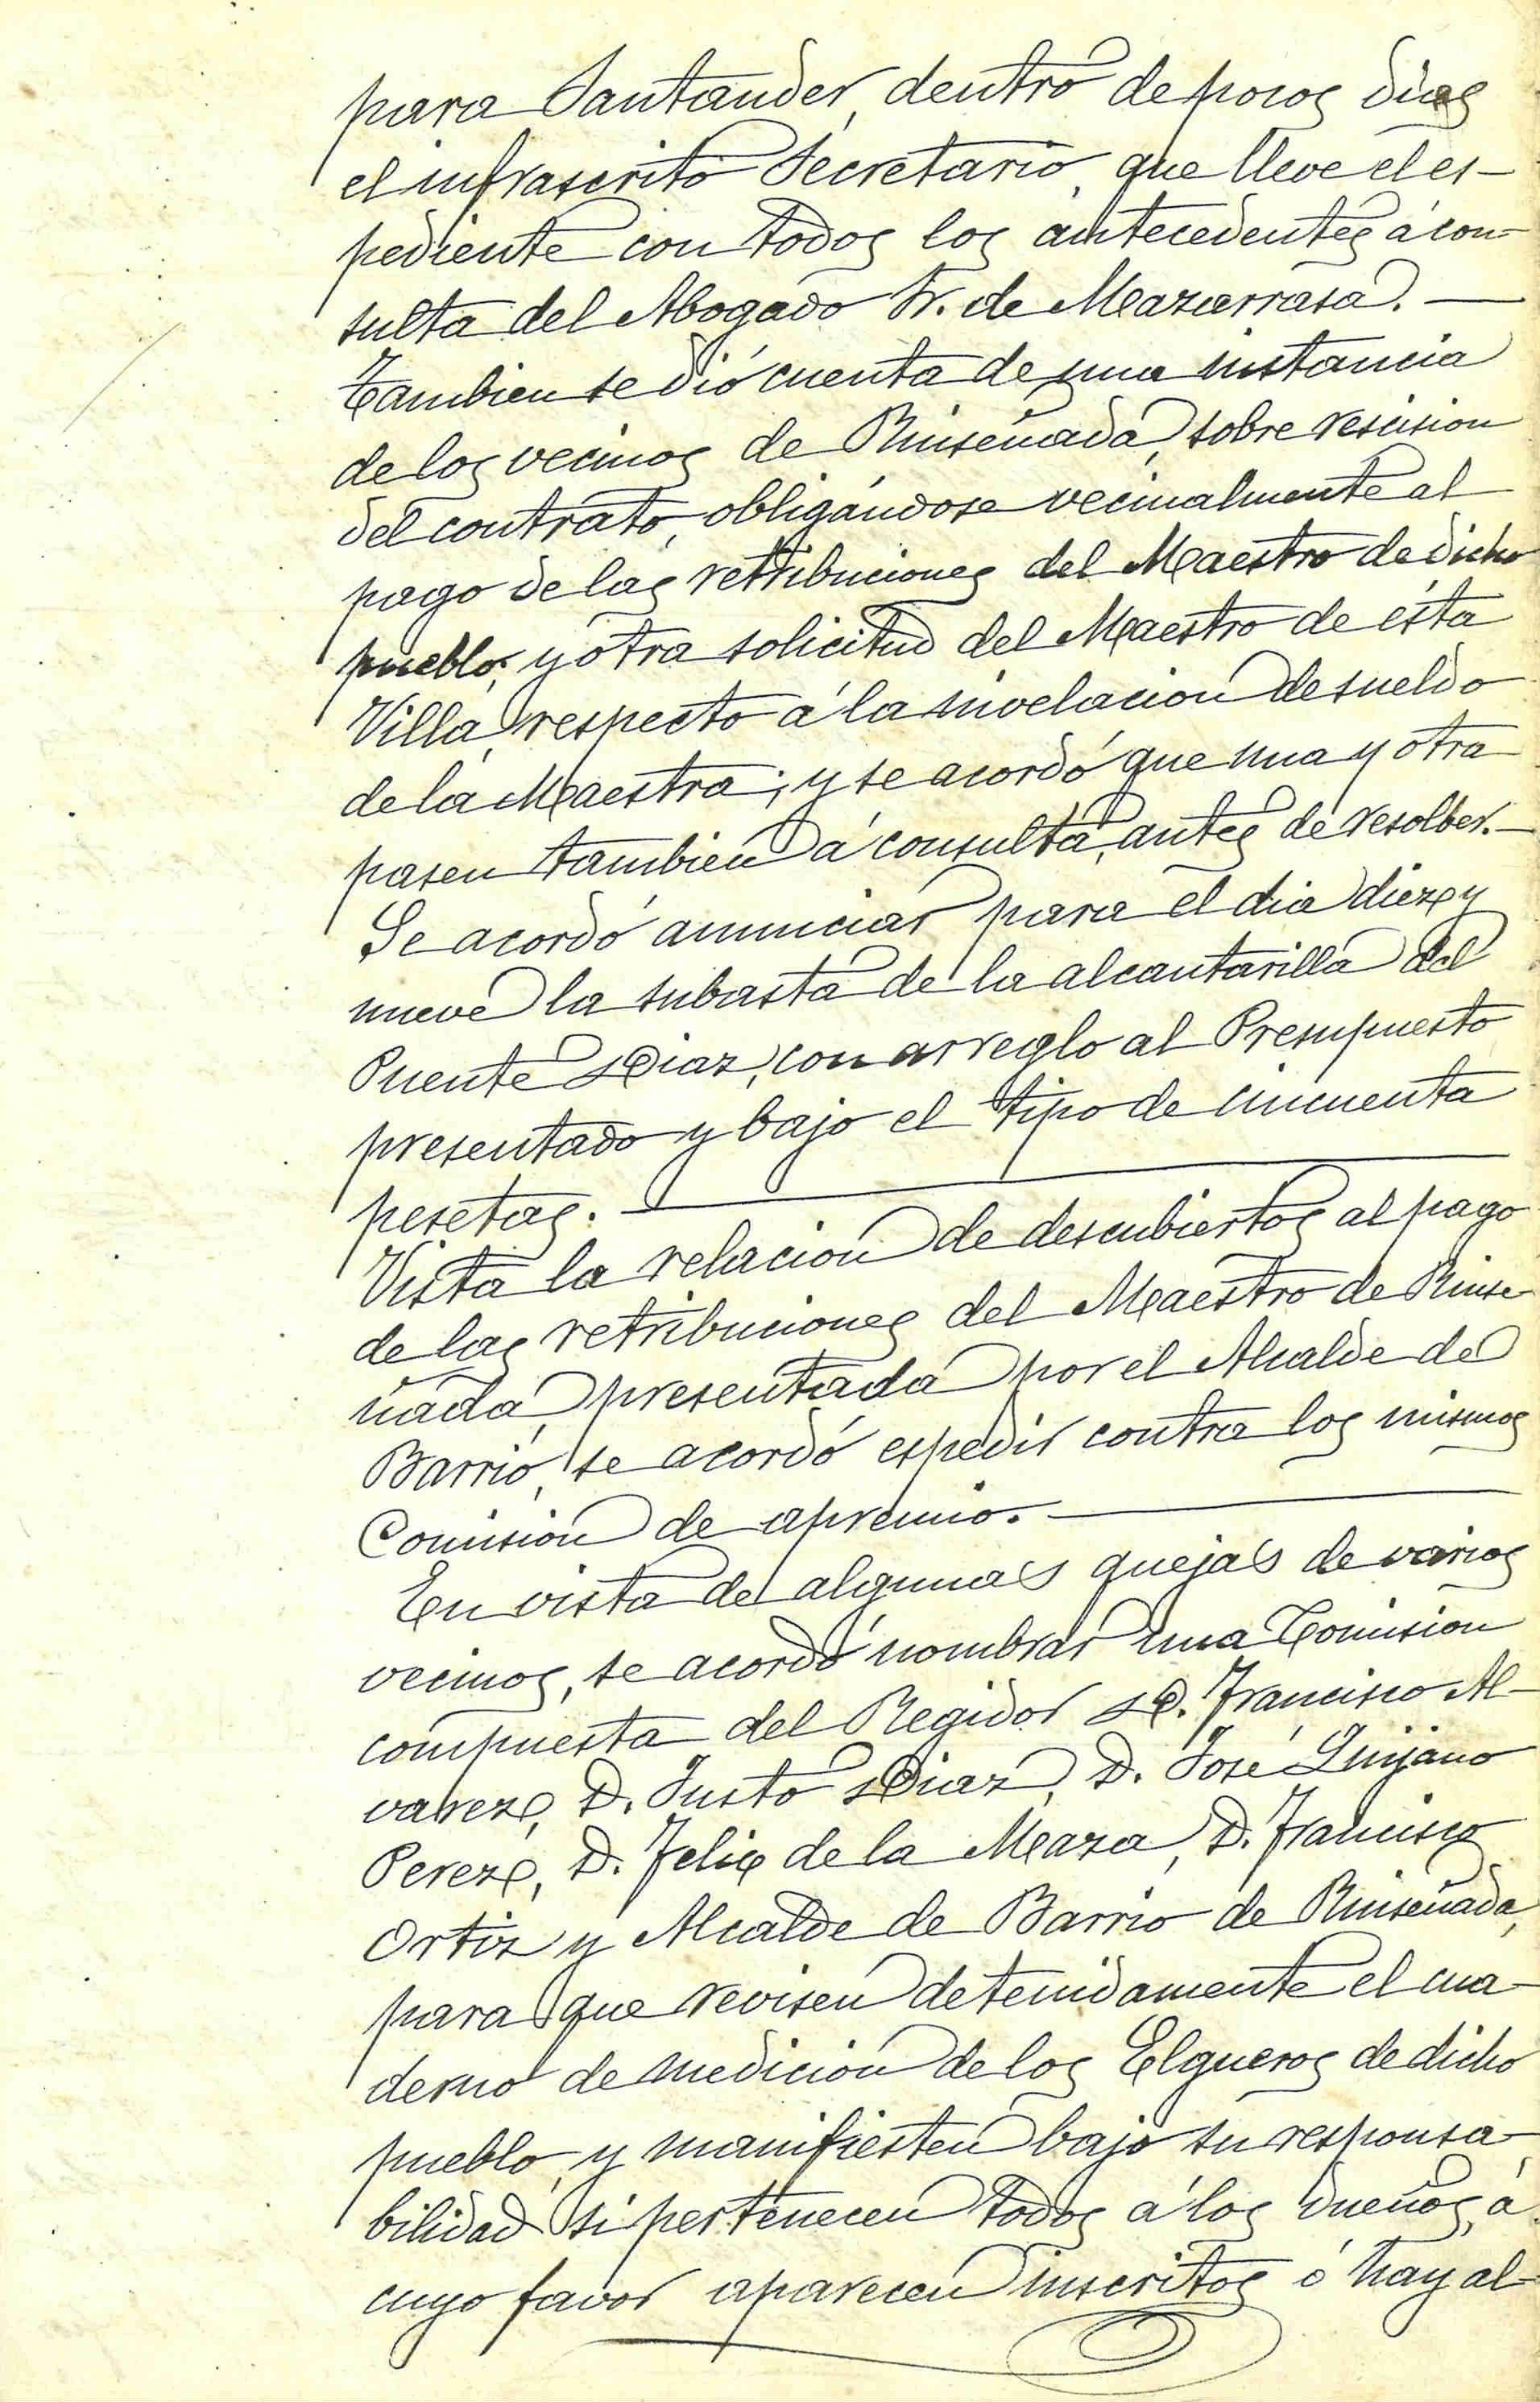 para Santander, dentro de pocos dias
el infrascrito Secretario, que lleve el es-
pediente con todos los antecedentes á con-
sulta del Abogado Sr. de Mazarrasa. —
Tambien se dió cuenta de una instancia
de los vecinos de Rinseñada, sobre rescision
del contrato, obligándose vecinalmente al
pago de las retribuciones del Maestro de dicho
pueblo; y otra solicitud del Maestro de ésta
Villa, respecto á la nivelacion de sueldo
de la Maestra; y se acordó que una y otra
pasen tambien á consulta, antes de resolber. —
Se acordó anunciar para el dia diez y
nueve la subasta de la alcantarilla del
Puente Diaz, con arreglo al Presupuesto
presentado y bajo el tipo de cincuenta
pesetas. —
Vista la relacion de descubiertos al pago
de las retribuciones del Maestro de Rinse-
ñada, presentada por el Alcalde de
Barrio, se acordó espedir contra los mismos
Comision de apremio. —
En vista de algunas quejas de varios
vecinos, se acordó nombrar una Comision
compuesta del Regidor D. Francisco Al-
varez, D. Justo Diaz, D. José Quijano
Perez, D. Felix de la Maza, D. Francisco
Ortiz y Alcalde de Barrio de Rinseñada,
para que revisen detenidamente el cua-
derno de medicion de los Elgueros de dicho
pueblo, y manifiesten bajo su responsa-
bilidad si pertenecen todos á los dueños, á
cuyo favor aparecen inscritos ó hay al-